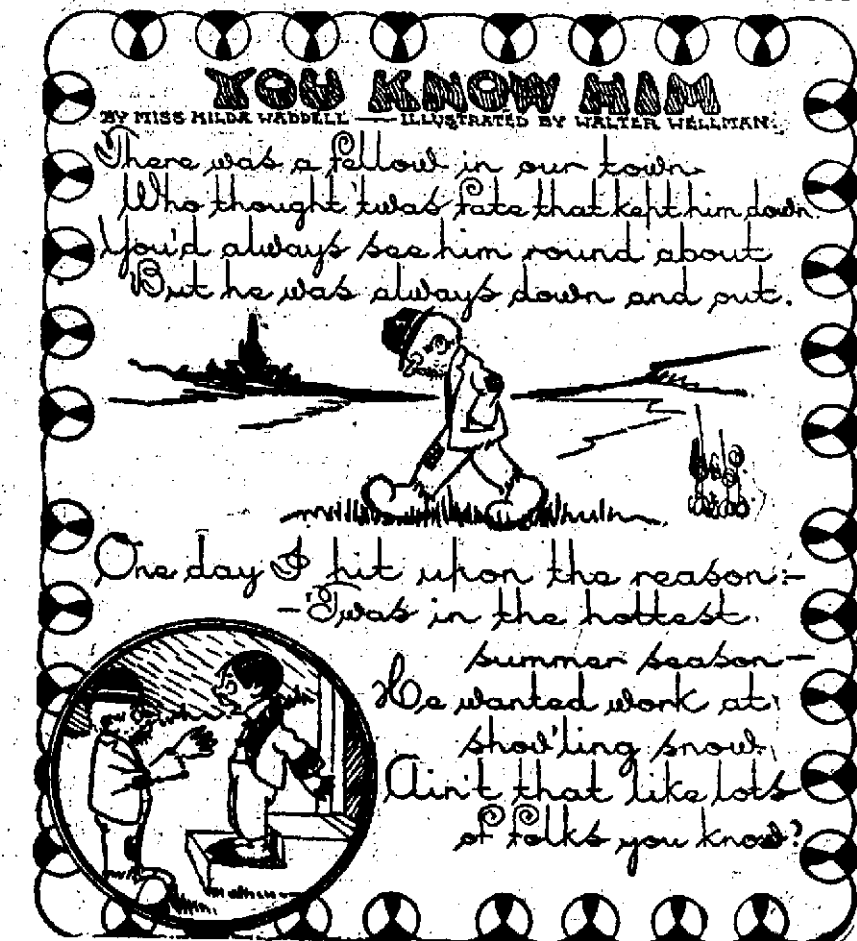 YOU KNOW HIM
BY MISS HILDA WADDELL — ILLUSTRATED BY WALTER WELLMAN.
There was a fellow in our town
Who thought 'twas fate that kept him down.
You'd always see him round about
But he was always down and out.
One day I hit upon the reason:-
-'Twas in the hottest
summer season-
He wanted work at
shov'ling snow.
Ain't that like lots
of folks you know?